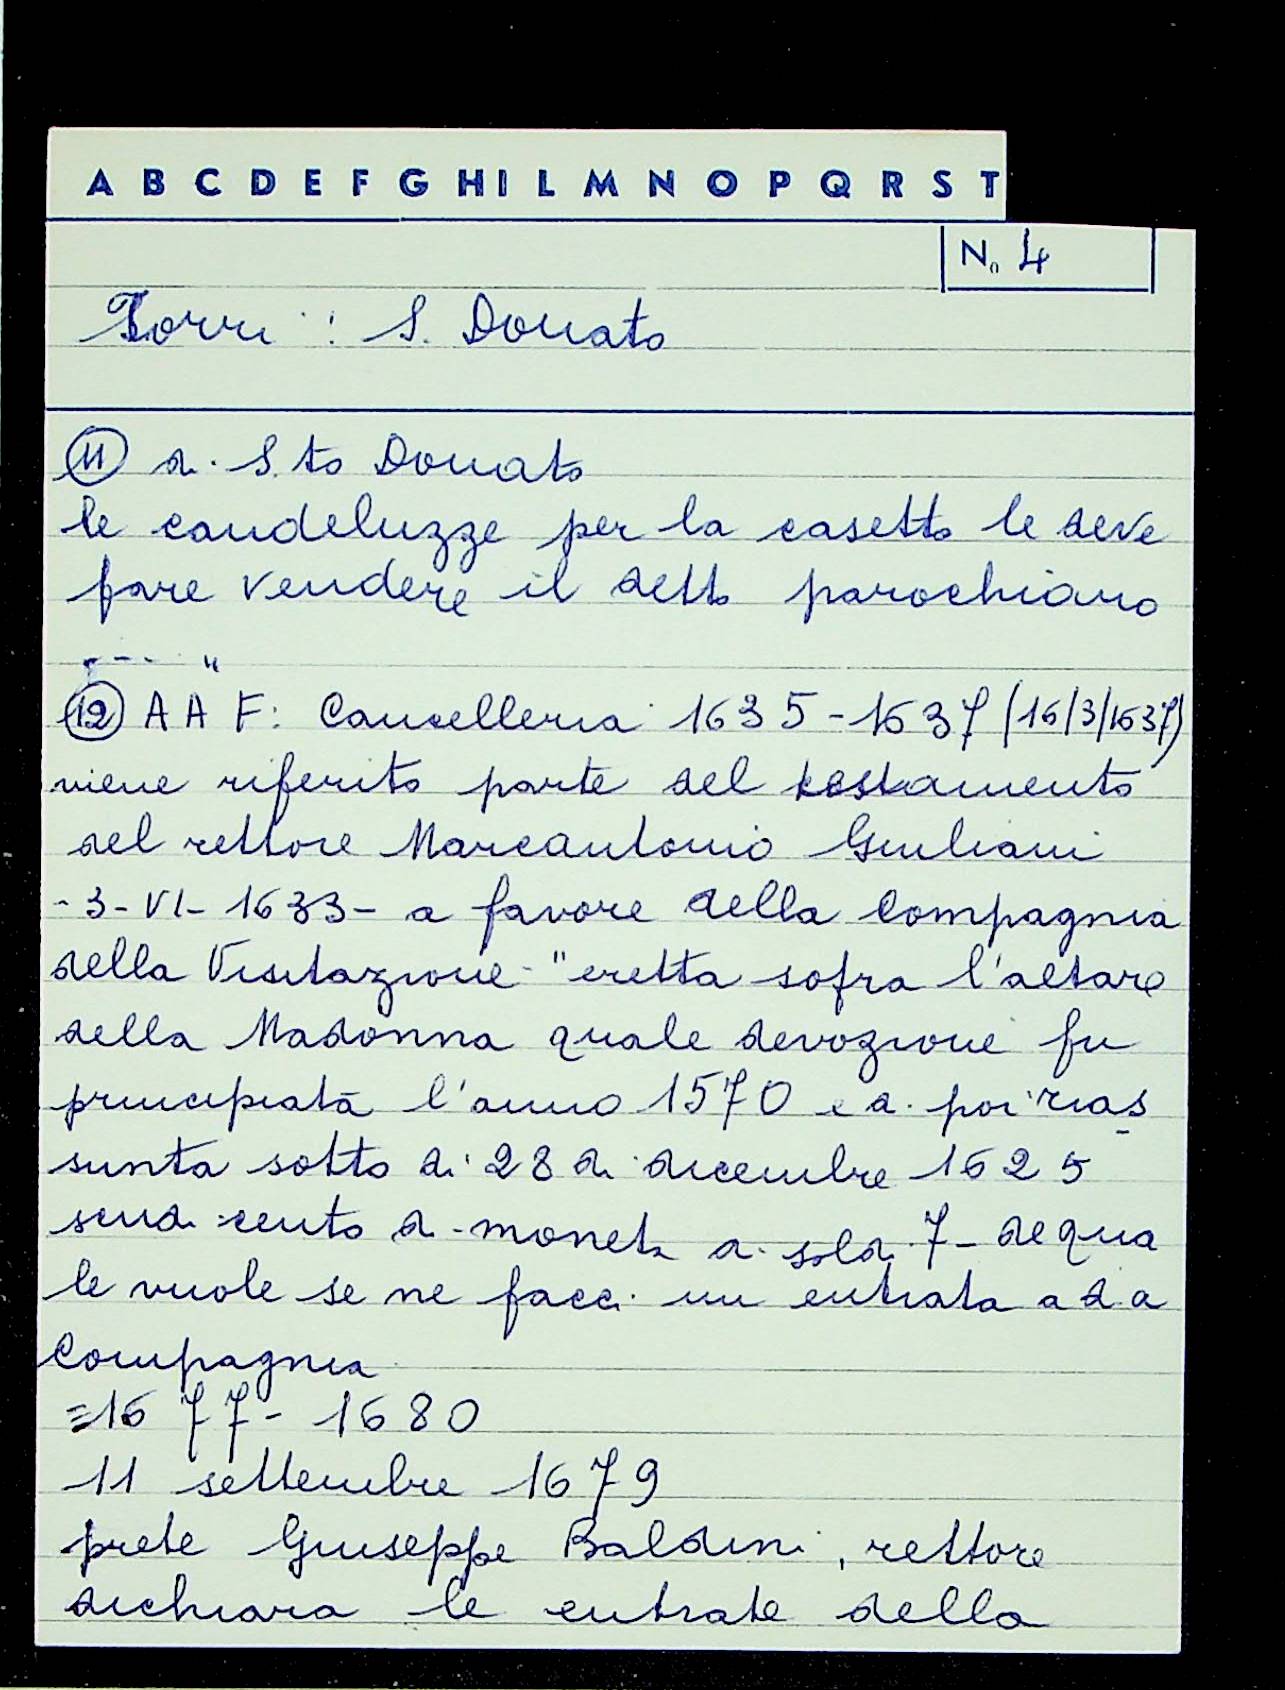 A B C D E F G H I L M N O P Q R S T
No 4
Torri : S. Donato
(11) di S. to Donato
le candeluzze per la casetta le deve
fare vendere il detto parochiano
---- "
(12) A A F: Cancelleria 1635-1637 (16/3/1637)
viene riferito parte del testamento
del rettore Marcantonio Giuliani
-3-VI-1633- a favore della Compagnia
della Visitazione "eretta sofra l'altare
della Madonna quale devozione fu
principiata l'anno 1570 e di poi rias
sunta sotto di 28 di dicembre 1625
scudi cento di moneta di soldi 7- de qua
le vuole se ne facci un entrata a d.a
Compagnia
=1677-1680
11 settembre 1679
prete Giuseppe Baldini, rettore
dichiara le entrate della